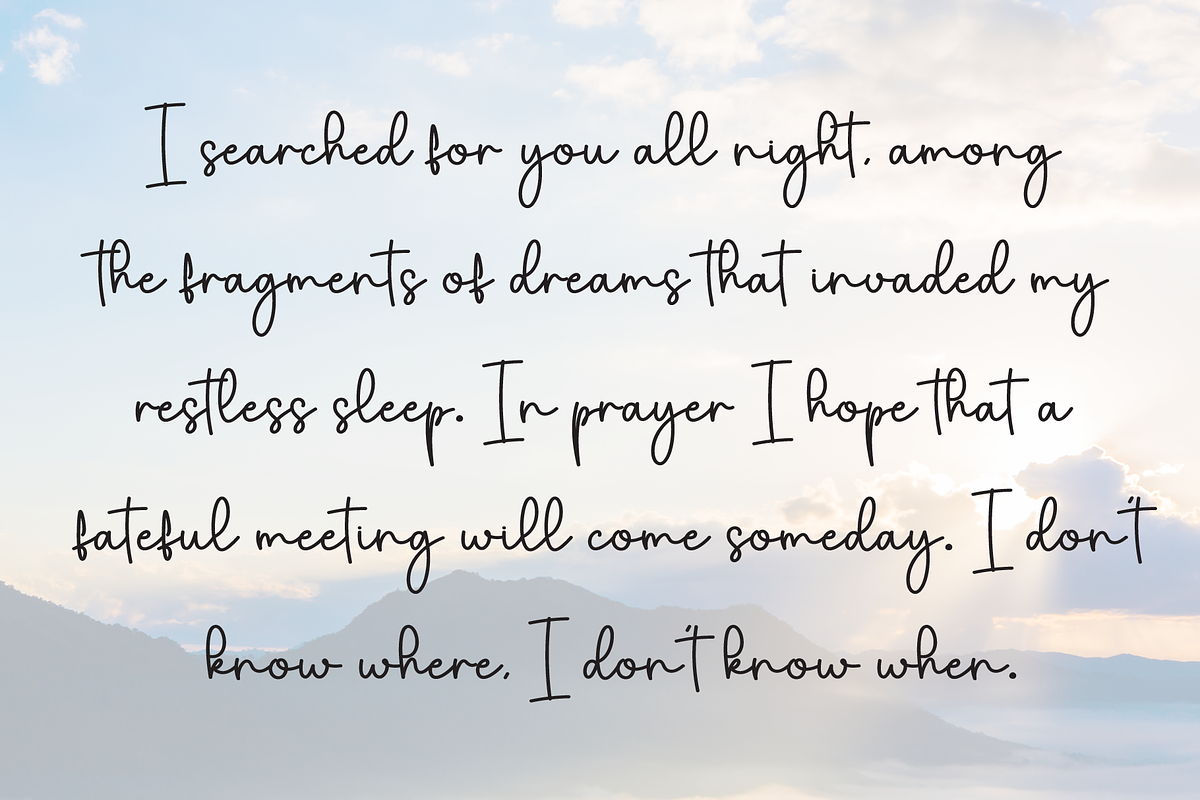 I searched for you all night, among
the fragments of dreams that invaded my
restless sleep. In prayer I hope that a
fateful meeting will come someday. I don't
know where, I don't know when.